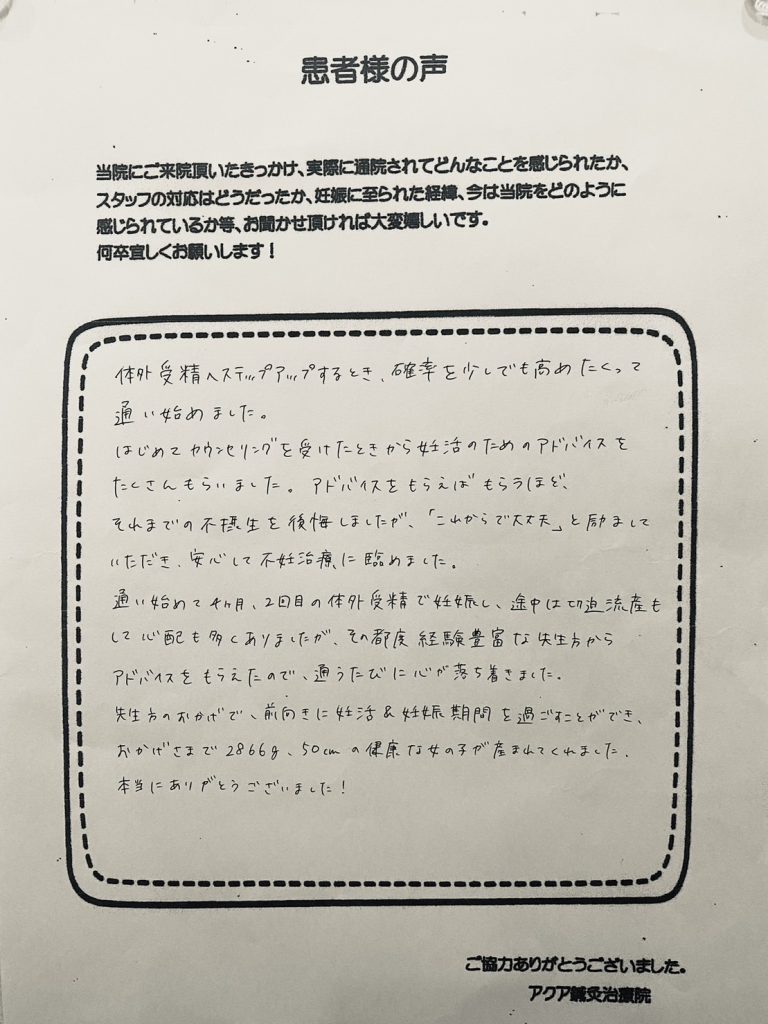 患者様の声
当院にご来院頂いたきっかけ、実際に通院されてどんなことを感じられたか、
スタッフの対応はどうだったか、妊娠に至られた経緯、今は当院をどのように
感じられているか等、お聞かせ頂ければ大変嬉しいです。
何卒宜しくお願いします!
体外受精へステップアップするとき、確率を少しでも高めたくって
通い始めました。
はじめてカウンセリングを受けたときから妊活のためのアドバイスを
たくさんもらいました。アドバイスをもらえばもらうほど、
それまでの不摂生を後悔しましたが、「これからで大丈夫」と励まして
いただき、安心して不妊治療に臨めました。
通い始めて4ヶ月、2回目の体外受精で妊娠し、途中は切迫流産も
して心配も多くありましたが、その都度経験豊富な先生方から
アドバイスをもらえたので、通うたびに心が落ち着きました。
先生方のおかげで、前向きに妊活&妊娠期間を過ごすことができ、
おかげさまで2866g、50cmの健康な女の子が産まれてくれました。
本当にありがとうございました!
ご協力ありがとうございました。
アクア鍼灸治療院